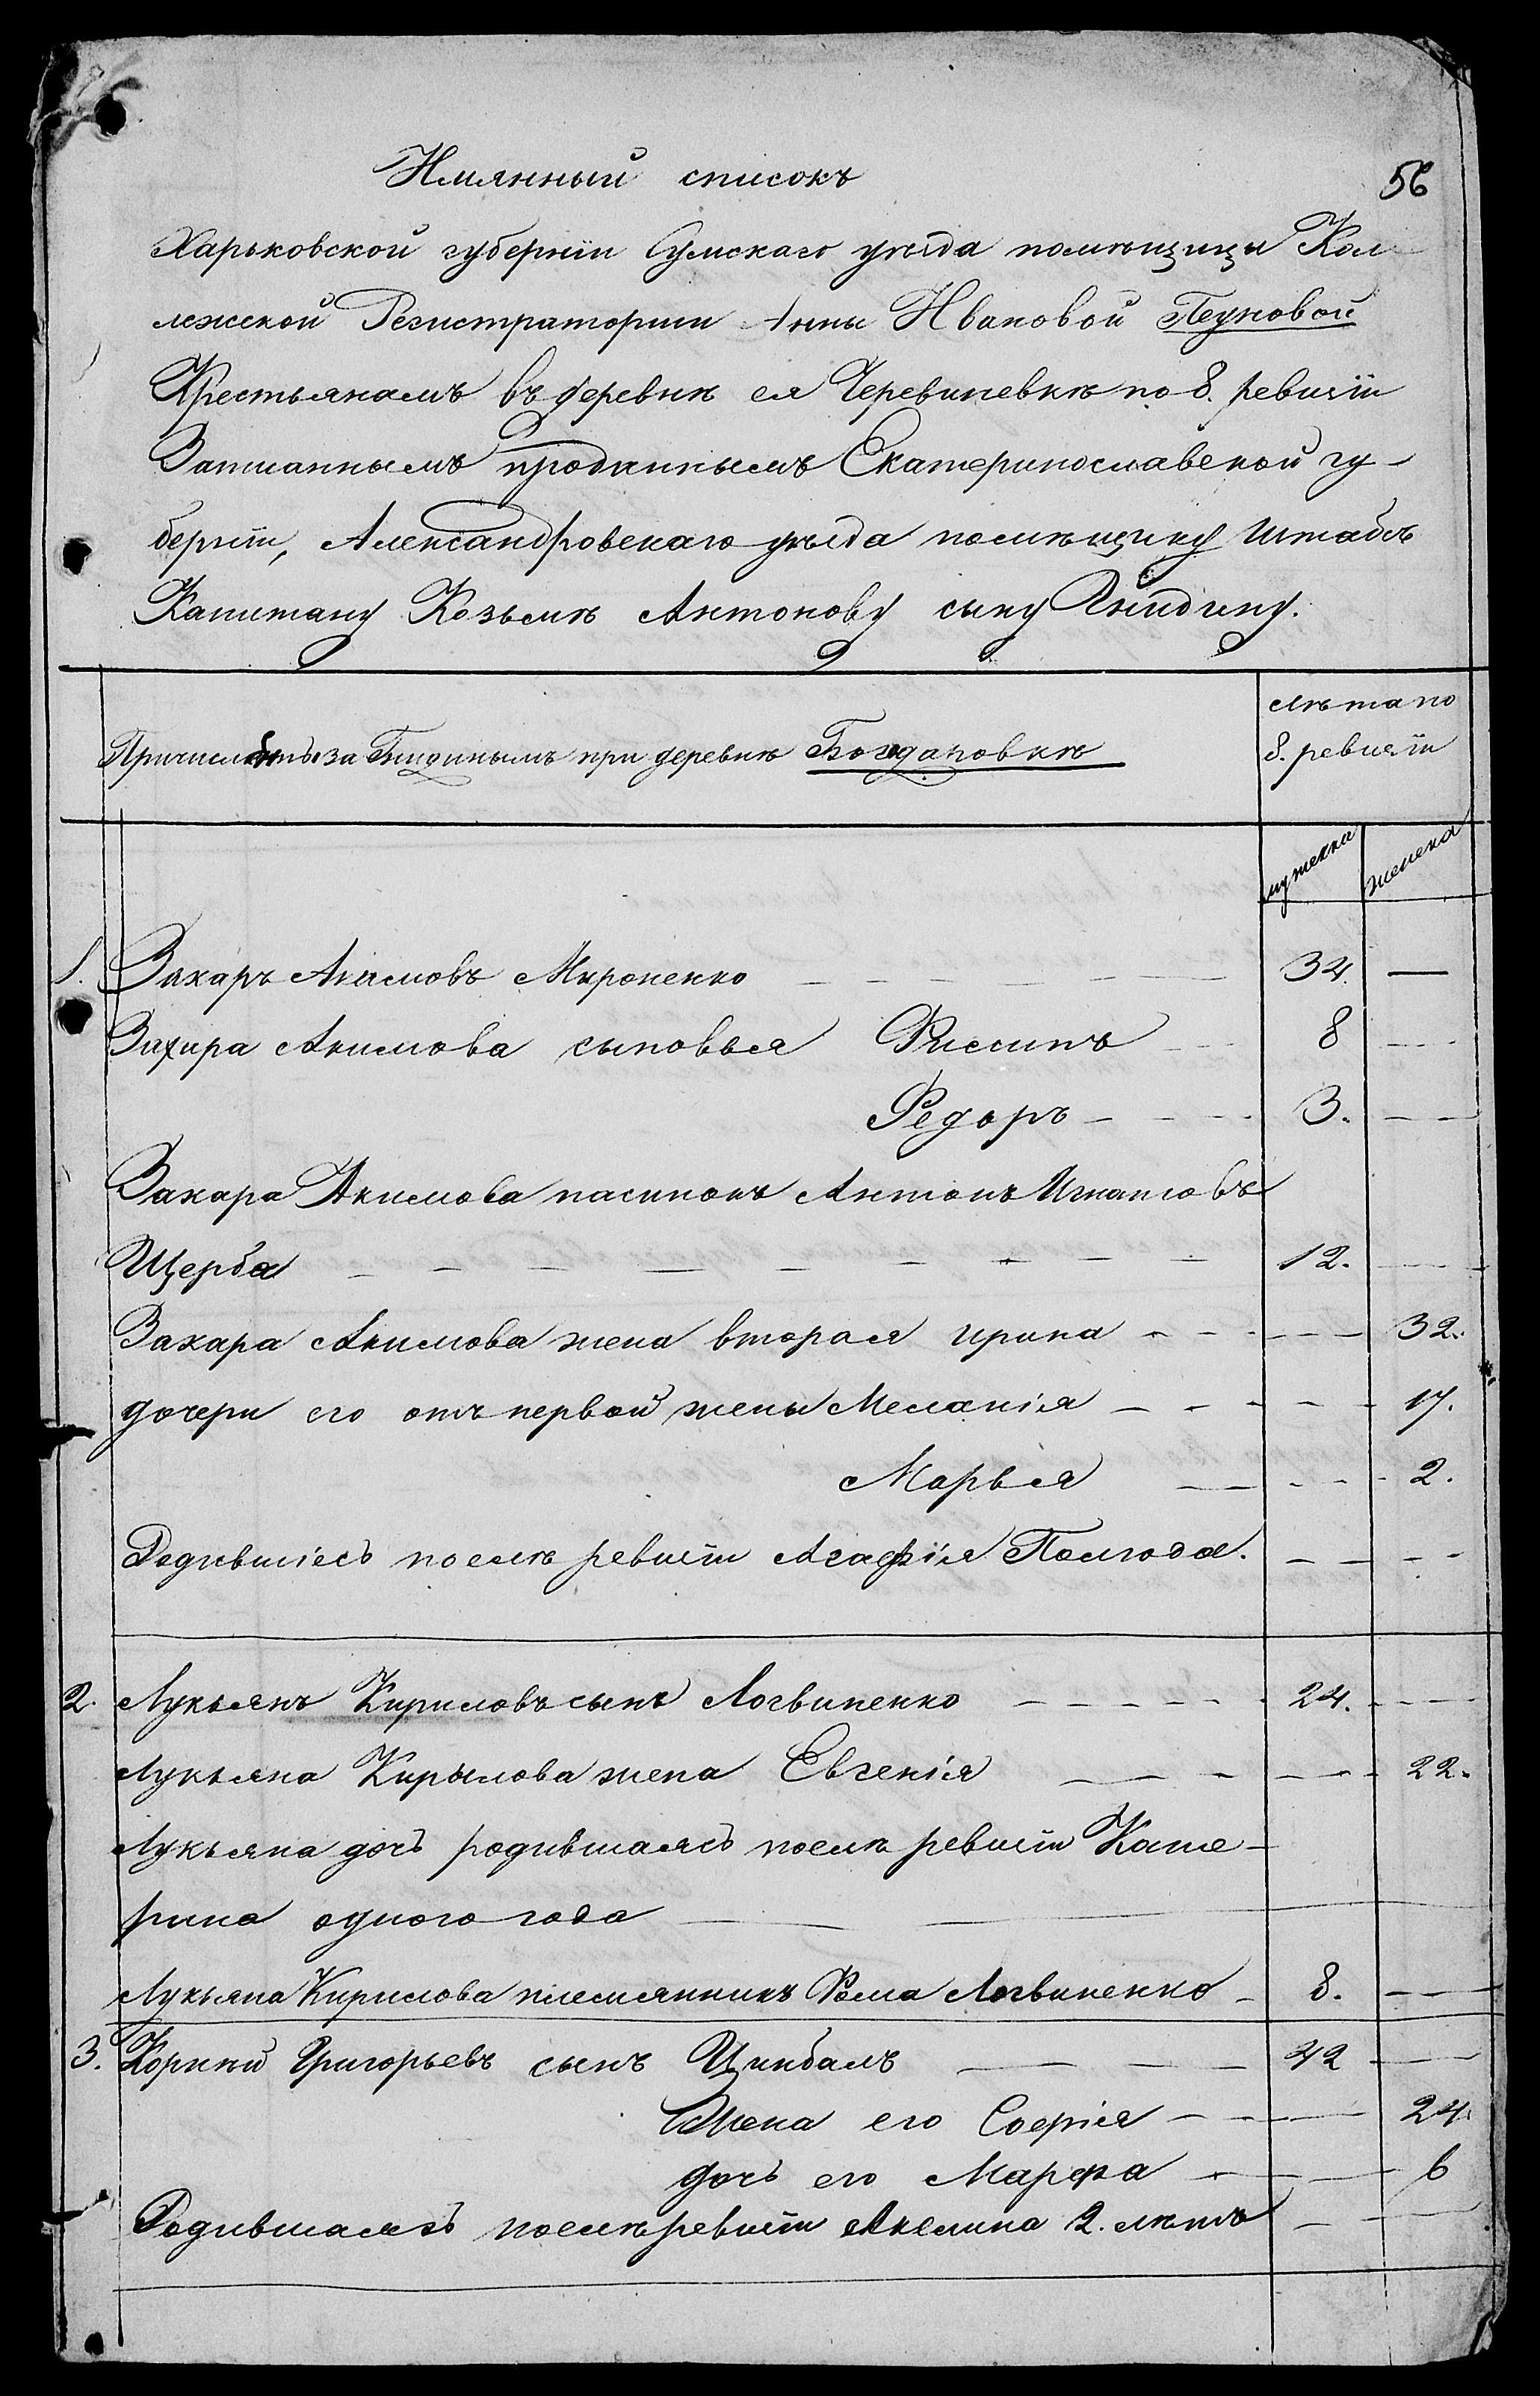 Имянный списокъ
56
Харьковской губернiи Сумскаго уѣзда помѣщицы Кол-
лежской Регистраторши Анны Ивановой Пеуновой
Крестьянамъ въ деревнѣ ея Черевиневкѣ по 8. ревизiи
Записаннымъ проданнымъ Екатеринославской гу-
бернiи, Александровскаго уѣзда помѣщику Штабсъ
Капитану Козьмѣ Антонову сыну Гнидину.
Причислить за Гнидинымъ при деревнѣ Богдановкѣ
лѣта по
8. ревизiи
мужеска
женска
1. Захаръ Акимовъ Мироненко 34. —
Захара Акимова сыновья 8
Федоръ 3.
Захара Акимова пасинокъ Антонъ Игнатовъ
Щерба 12.
Захара Акимова жена вторая Ирина 32.
дочери его отъ первой жены Меланiя 17.
Марья 2.
Родившiесь послѣ ревизiи Агафiя Полгода.
2. Лукьянъ Кириловъ сынъ Логвиненко 24.
Лукьяна Кирылова жена Евгенiя 22.
Лукьяна дочь родившаясь послѣ ревизiи Кате-
рина одного года
Лукьяна Кирилова племянникъ Фома Логвиненко 8.
3. Корнѣй Григорьевъ сынъ Цинбалъ 42
Жена его Софiя 24
дочь его Марфа 6
Родившаясь послѣ ревизiи Акелина 2. лѣтъ